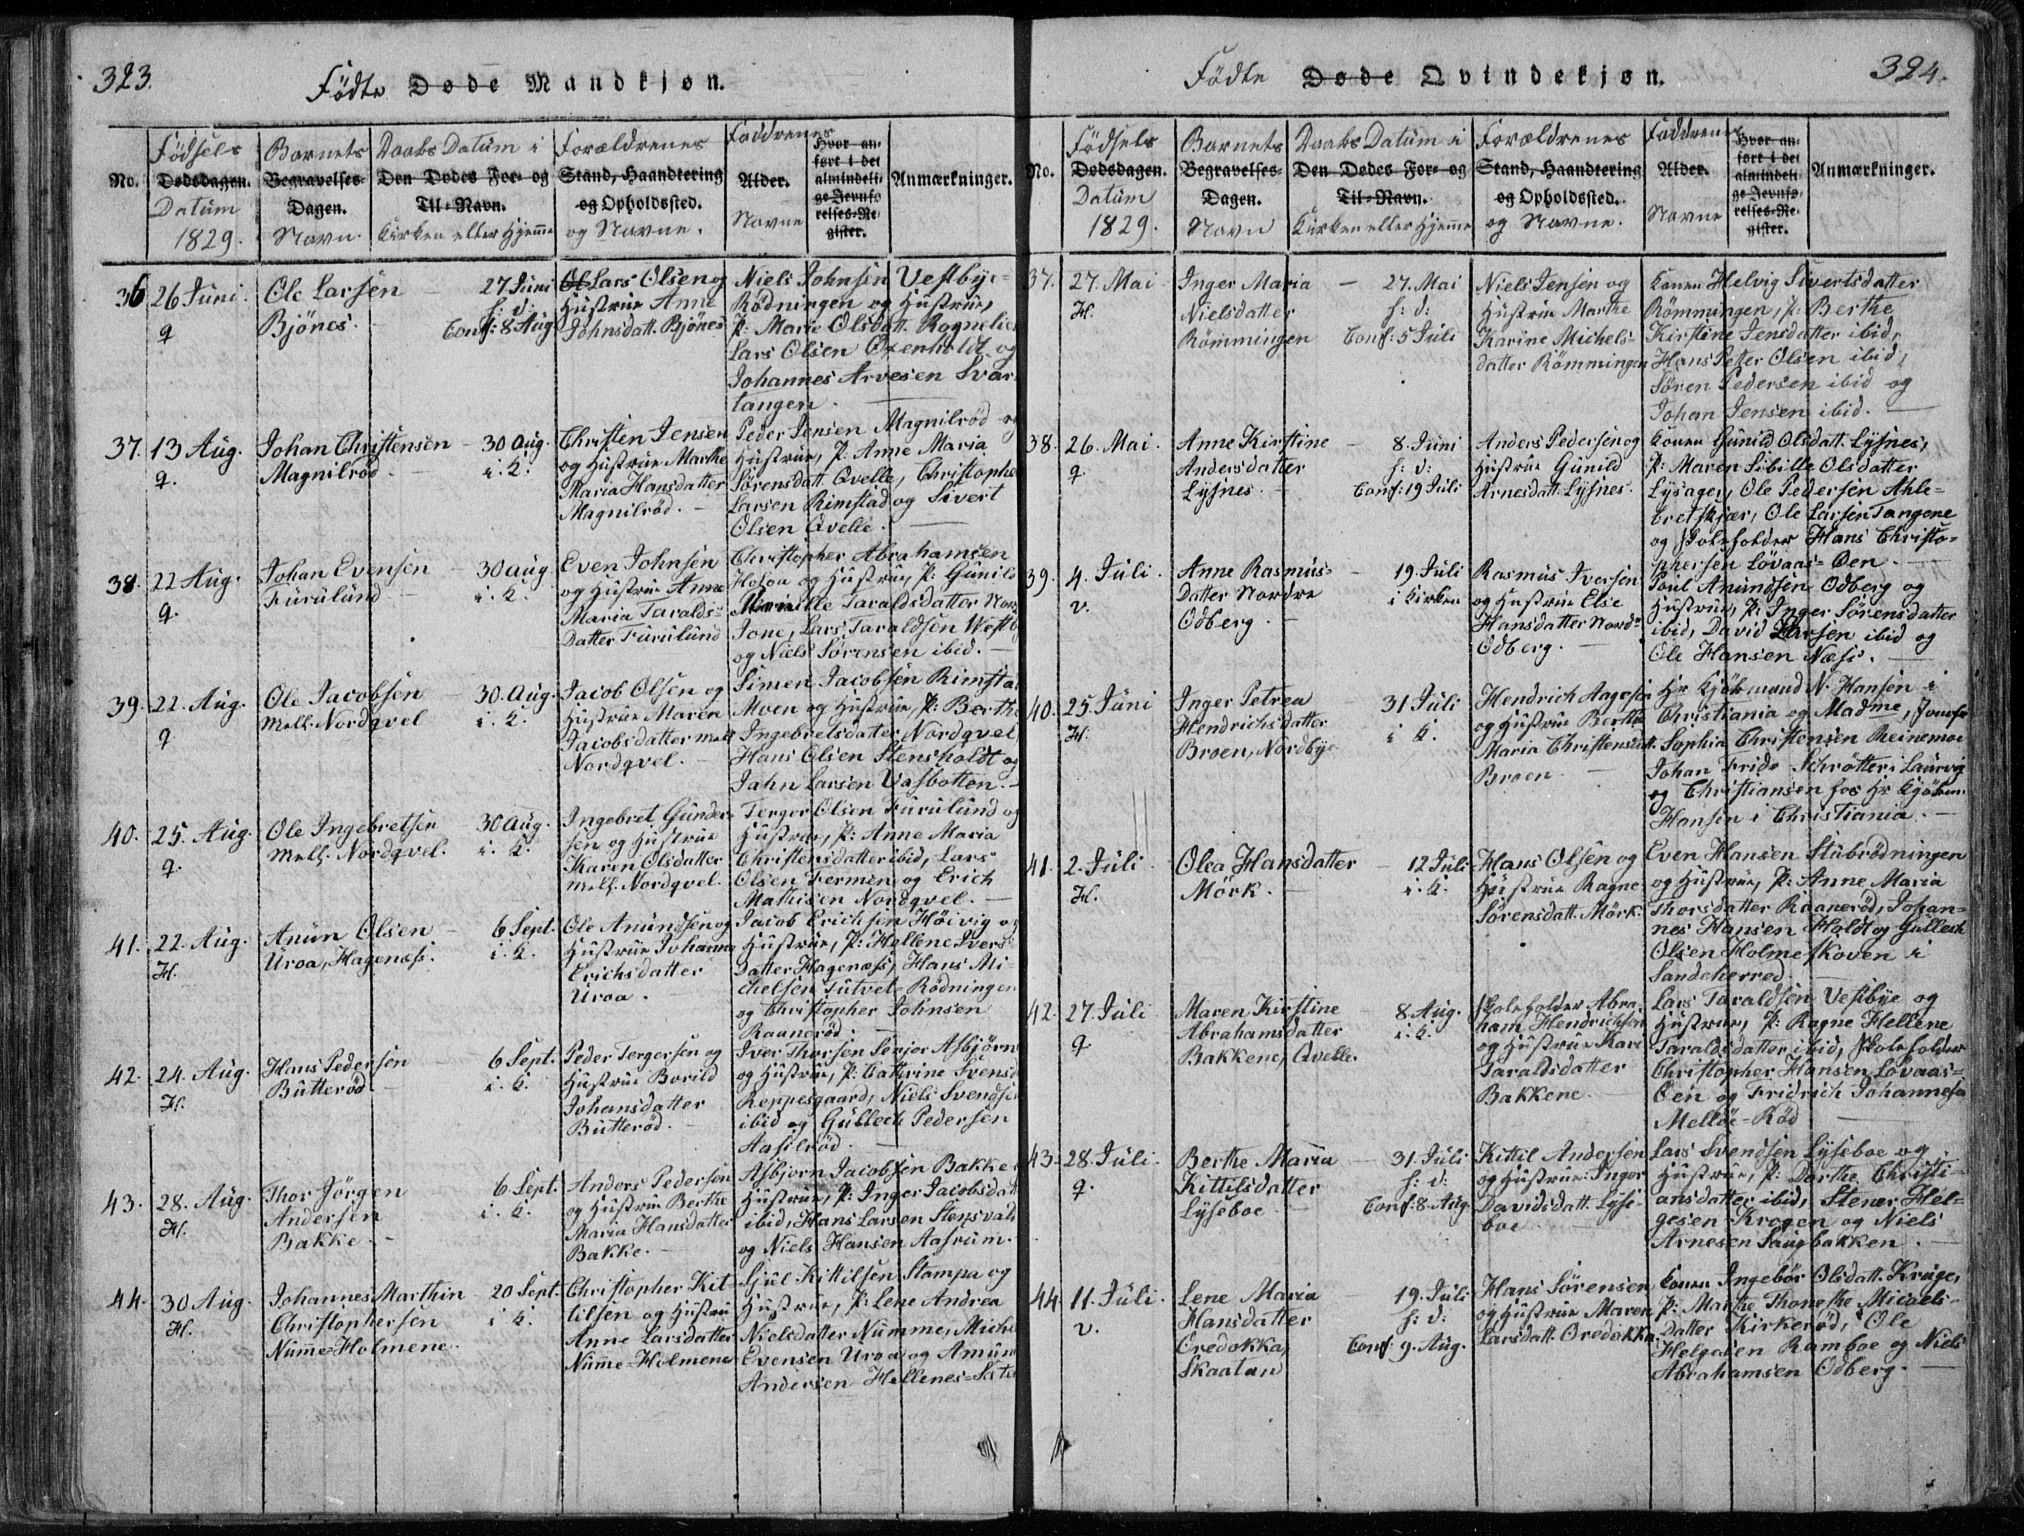 323.
Födte Døde Mandkjøn.
No.
Födsels
Dødsdagen.
Datum
1829.
Barnets
Begravelses-
Dagen.
Navn.
Daabs Datum i
Den Dødes For- og
Til-Navn.
Kirken eller Hjemme
Forældrenes
Stand, Haandtering
og Opholdssted.
og Navne.
Faddrenes
Alder.
Navne
Hvor an-
ført i det
almindeli-
ge Jevnfø-
relses-Re-
gister.
Anmærkninger.
36
26 Juni.
q
Ole Larsen
Bjönes.
27 Juni
h: d:
Conf: 8 Aug
Lars Olsen og
Hustrue Anne
Johnsdatt. Bjönes
Niels Johnsen Vestbye-
Rödningen og Hustrue,
P: Marie Olsdatt. Rognelie
Lars Olsen Oxenholdt og
Johannes Arvesen Svar
tangen.
37.
13 Aug.
q.
Johan Christensen
Magnilröd.
30 Aug.
i. K.
Christen Jensen
og Hustrue Marthe
Maria Hansdatter
Magnilröd.
Peder Jensen Magnilröd og
Hustrue, P: Anne Maria
Sørensdatt. Qvelle, Christopher
Larsen Rimstad og Sivert
Olsen Qvelle.
38.
22 Aug.
q.
Johan Evensen
Furulund
30 Aug
i. K.
Even Johnsen
og Hustrue Anne
Maria Taralds-
Datter Furulund
Christopher Abrahamsen
og Hustrue, P: Gunild
Taraldsdatter
Lars Taraldsen Westb
og Niels Sörensen ibid.
39.
22. Aug.
q
Ole Jacobsen
Mell. Nordqvel
30. Aug.
i. K.
Jacob Olsen og
Hustrue Maren
Jacobsdatter mell
Nordqvel.
Simen Jacobsen Rimsta
Moen og Hustrue, P: Berthe
Ingebretsdater Nordqvel,
Hans Olsen Stensholdt og
Jahn Larsen Vasbotten.
40.
25. Aug
q.
Ole Ingebretsen
Mell. Nordqvel.
30 Aug.
i. K.
Ingebret Gunder-
sen og Hustrue
Karen Olsdatter
mell. Nordqvel.
Terger Olsen Furulund og
Hustrue, P: Anne Maria
Christensdatter ibid, Lars
Olsen Fermen og Erich
Mathisen Nordqvel.
41.
22. Aug.
H.
Anun Olsen
Uroa, Hagenæss.
6 Sept.
i. K.
Ole Amundsen og
Hustrue Johanna
Erichsdatter
Uroa.
Jacob Erichsen Höivig og
Hustrue, P: Hellene Ivers
Datter Hagenæss, Hans Mi-
chelsen Tutvet-Rödningen
og Christopher Johnsen
Raanerød.
42.
24. Aug.
H.
Hans Pedersen
Butterød
6 Sept.
i. K.
Peder Tergersen og
Hustrue Borild
Johansdatter
Butterød.
Iver Thorsen Senjor Asbjörn
og Hustrue, P: Cathrine Svensd
Reppesgaard, Niels Svendsen
ibid og Gullech Pedersen
Aasilrød.
43.
28. Aug.
H.
Thor Jörgen
Andersen
Bakke.
6 Sept.
i. K.
Anders Pedersen
og Hustrue Berthe
Maria Hansdatter
Bakke.
Asbjørn Jacobsen Bakke
Hustrue, P: Inger Jacobsdatt
ibid, Hans Larsen Stensvald
og Niels Hansen Aasrum.
44.
30 Aug.
H.
Johannes Marthin
Christophersen
Numme-Holmene.
20 Sept.
i K.
Christopher Kit
tilsen og Hustru
Anne Larsdatter
Numme-Holmene
Sjul Kittilsen Stampa og
Hustrue, P: Lene Andrea
Nielsdatter Numme, Miche
Evensen Uroa og Amun
Andersen Hellenes-Sete
324.
Födte Døde Qvindekjøn.
No.
Födsels
Dødsdagen.
Datum
1829.
Barnets
Begravelses-
Dagen.
Navn
Daabs Datum i
Den Dødes For- og
Til-Navn.
Kirken eller Hjemme
Forældrenes
Stand, Haandtering
og Opholdssted.
og Navne.
Faddrenes
Alder.
Navne
Hvor an-
ført i det
almindeli-
ge Jevnfø-
relses-Re-
gister.
Anmærkninger.
37.
27. Mai
H.
Inger Maria
Nielsdatter
Rømmingen
27. Mai
h: d:
Conf: 5 Juli
Niels Jensen og
Hustrue Marthe
Karine Michels-
datter Rømmingen
Konen Helvig Sivertsdatter
Rømmingen, P: Berthe
Kirstine Jensdatter ibid,
Hans Petter Olsen ibid,
Sören Pedersen ibid og
Johan Jensen ibid.
38.
26. Mai.
q.
Anne Kirstine
Andersdatter
Lysnes.
8. Juni
h: d:
Conf: 19 Juli
Anders Pedersen og
Hustrue Gunild
Arnesdatt. Lysnes.
Konen Gunild Olsdatt. Lysnes,
P: Maren Sibille Olsdatter
Lysager, Ole Pedersen Ahle-
bretskjær, Ole Larsen Tangene
og Skoleholder Hans Christo-
phersen Lövaas-Oen.
39.
4. Juli.
v.
Anne Rasmus-
datter Nordre
Odberg.
19. Juli
i Kirken
Rasmus Iversen
og Hustrue Else
Hansdatter Nordr
Odberg.
Poul Amundsen Odberg og
Hustrue, P: Inger Sörensdatter
ibid, David Larsen ibid og
Ole Hansen Næss.
40.
25. Juni
H.
Inger Petrea
Hendrichsdatter
Broen, Nordbye
31 Juli
i K.
Hendrich Aagesen
og Hustrue Berthe
Maria Christensdatt.
Broen
Hr Kjöbmand N. Hansen i
Christiania og Madme, Jomfr
Sophia Christensen Reinemoe
Johan Schrötter i Laurvig
og Christiansen hos Hr Kjöbm.
Hansen i Christiania.
41.
2. Juli
H.
Olea Hansdatter
Mörk.
12 Juli
i. K.
Hans Olsen og
Hustrue Ragne
Sørensdatt. Mörk.
Even Hansen Stubrødningen
og Hustrue, P: Anne Maria
Thorsdatter Raanerød, Johan-
nes Hansen Holdt og Gullech
Olsen Holmeskoven i
Sandeherred.
42.
27. Juli
q
Maren Kirstine
Abrahamsdatter
Bakkene, Qvelle.
8 Aug.
i. K.
Skoleholder Abra-
ham Hendrichsen
og Hustrue Kari
Taraldsdatter
Bakkene.
Lars Taraldsen Vestbye og
Hustrue, P: Ragne Hellene
Taraldsdatter ibid, Skoleholder
Christopher Hansen Lovaas-
Oen og Fridrich Johannesen
Melløe-Röd
43.
28. Juli.
q.
Berthe Maria
Kittilsdatter
Lyseboe
31. Juli
h: d:
Conf: 8. Aug.
Kittil Andersen
og Hustrue Inger
Davidsdatt. Lyse-
boe
Lars Svendsen Lyseboe og
Hustrue, P: Dorthe Christi-
ansdatter ibid, Stener Hel-
gesen Krogen og Niels
Arnesen Saugbakken.
44
11. Juli.
v.
Lene Maria
Hansdatter
Oredokka
Skaatan
19. Juli
h: d:
Conf: 9. Aug.
Hans Sörensen
og Hustrue Maren
Larsdatt. Oredokka
Konen Ingebör Olsdatt. Kruge,
P: Marthe Thoneske Micaels
Datter Kirkerød, Ole
Helgesen Ramboe og Niels
Abrahamsen Odberg.